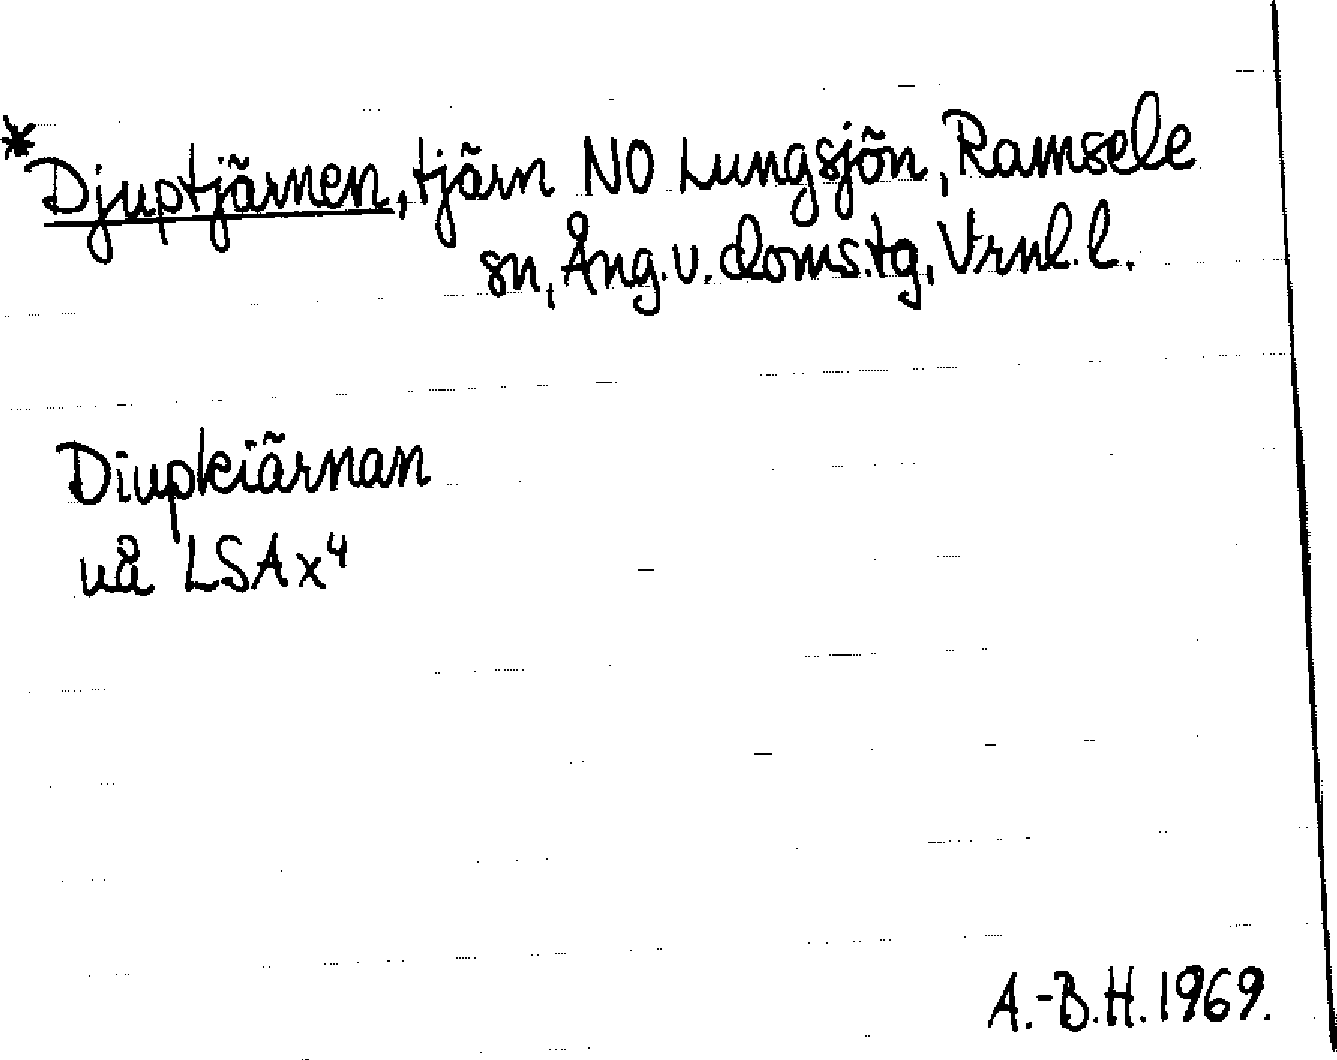 *Djuptjärnen, tjärn NO Lungsjön, Ramsele
sn, Ång. v. doms.tg, Vrnl. l.
Diupkiärnan
uå LSA x⁴
A.-B.H. 1969.